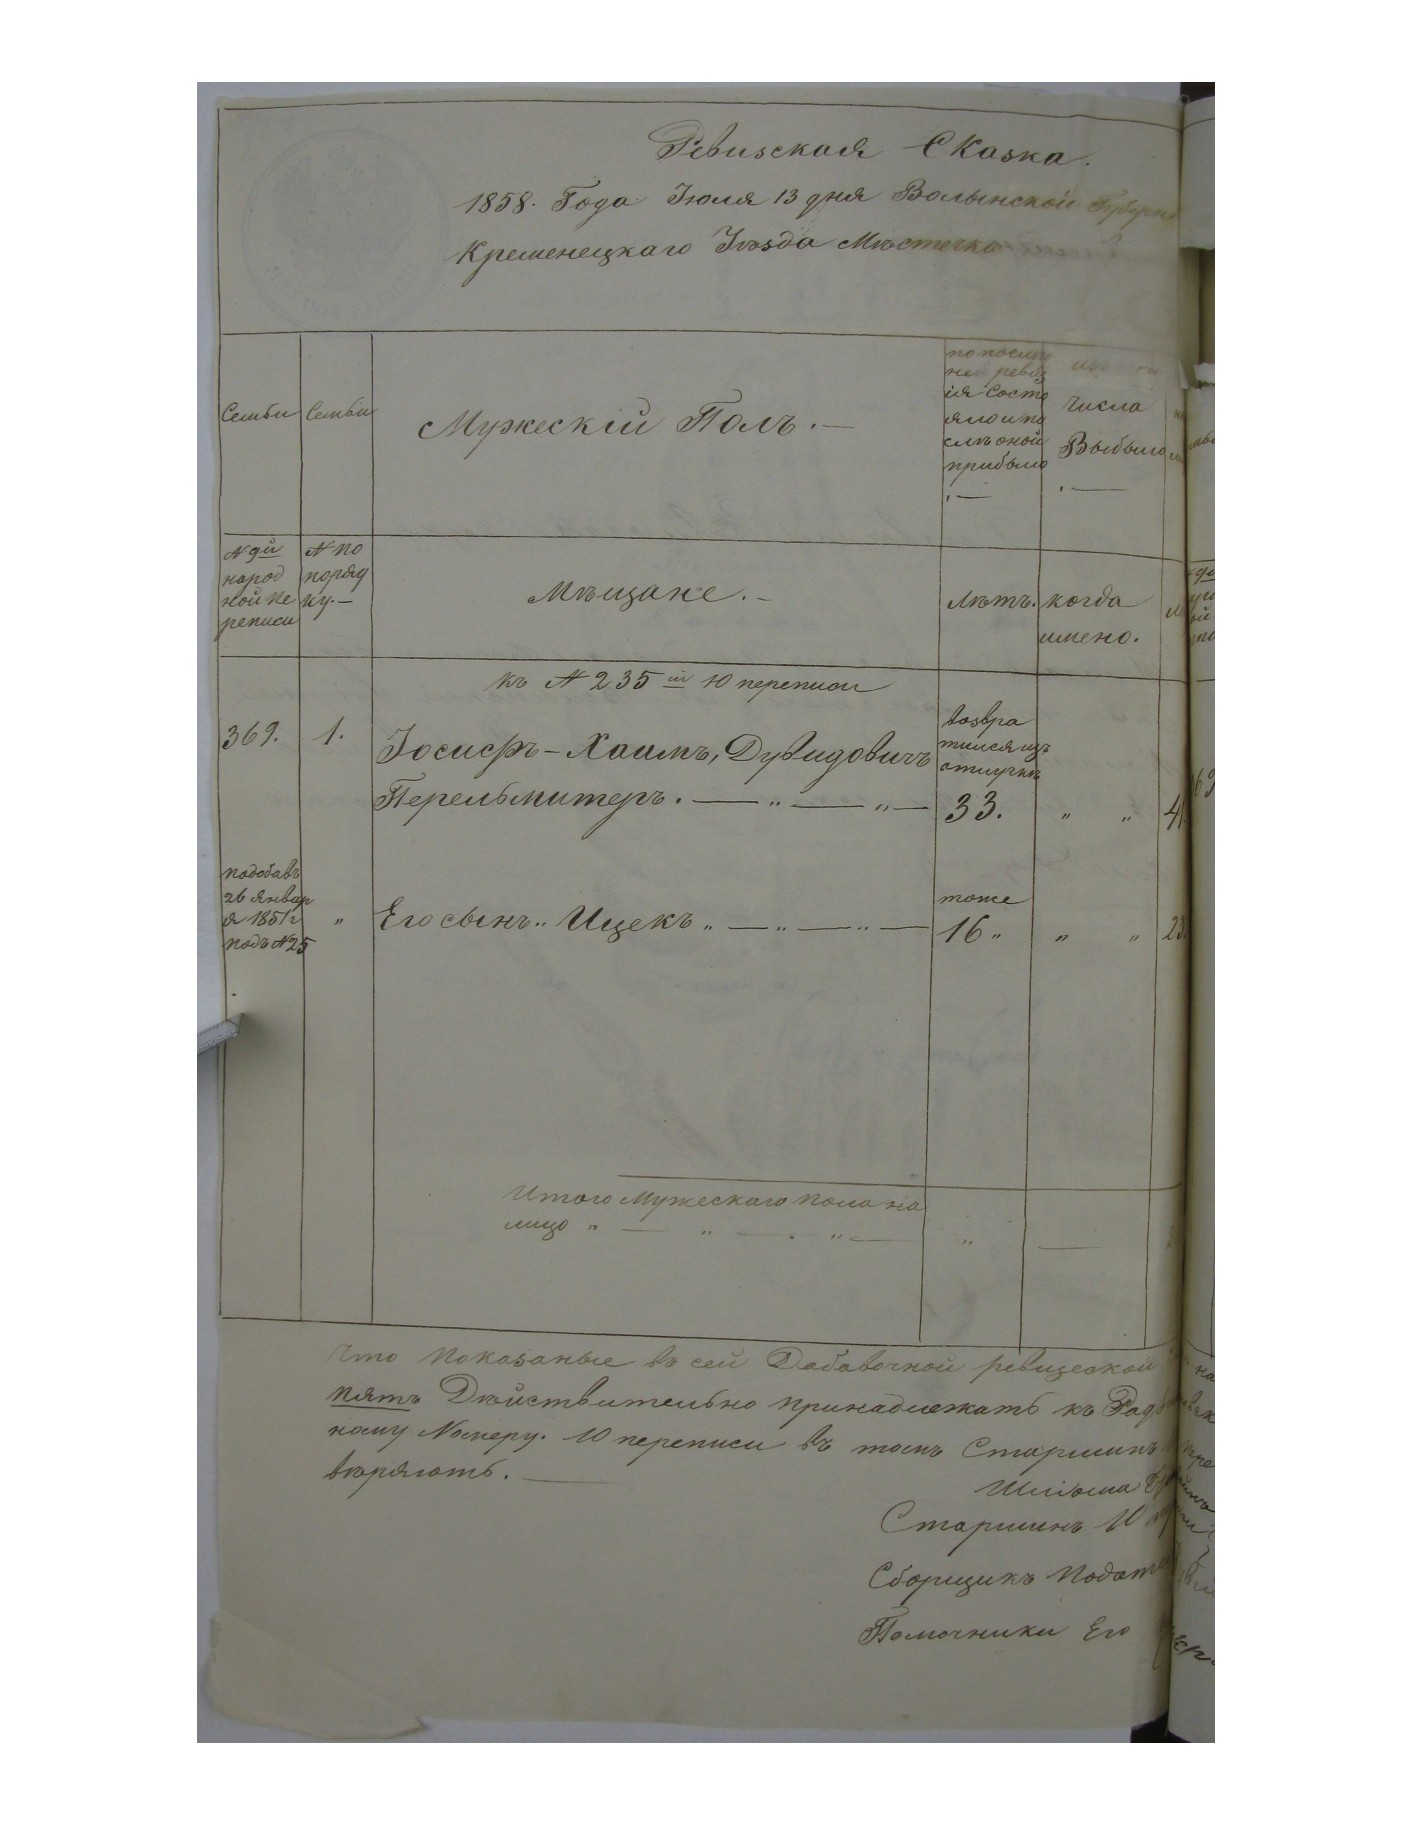 Ревизская Сказка.
1858. Года Іюля 13 дня Волынской Губерні
Кременецкаго Уѣзда Мѣстечка
Семьи
Семьи
Мужескій Полъ. —
по послѣд
ней ревиз
ія состо
яло и по
слѣ оной
прибыло
Числа
Выбыло
№ 9й
народ
ной пе
реписи
№ по
поряд
ку. —
Мѣщане. —
Лѣтъ.
когда
имено.
къ № 235 й 10 переписи
369.
1.
Іосифъ-Хаимъ, Дувидовичъ
Перельмитеръ. — „ — „ —
возвра
тился изъ
отлучки
33.
„ „
41.
подобавъ
26 январ
я 1851 г
подъ № 25
„
Его сынъ „ Ицекъ „ — „ — „ —
тоже
16 „
„ „
23.
Итого Мужескаго пола на
лицо „ — „ — . „ — „ —
Что показаные въ сей Добавочной ревизской
пять Дѣйствительно принадлежатъ къ Рад
ному Номеру. 10 переписи въ томъ Старшинъ
вѣряютъ. —
Шліома
Старшинъ 10
Сборщикъ Подат
Помочники Его